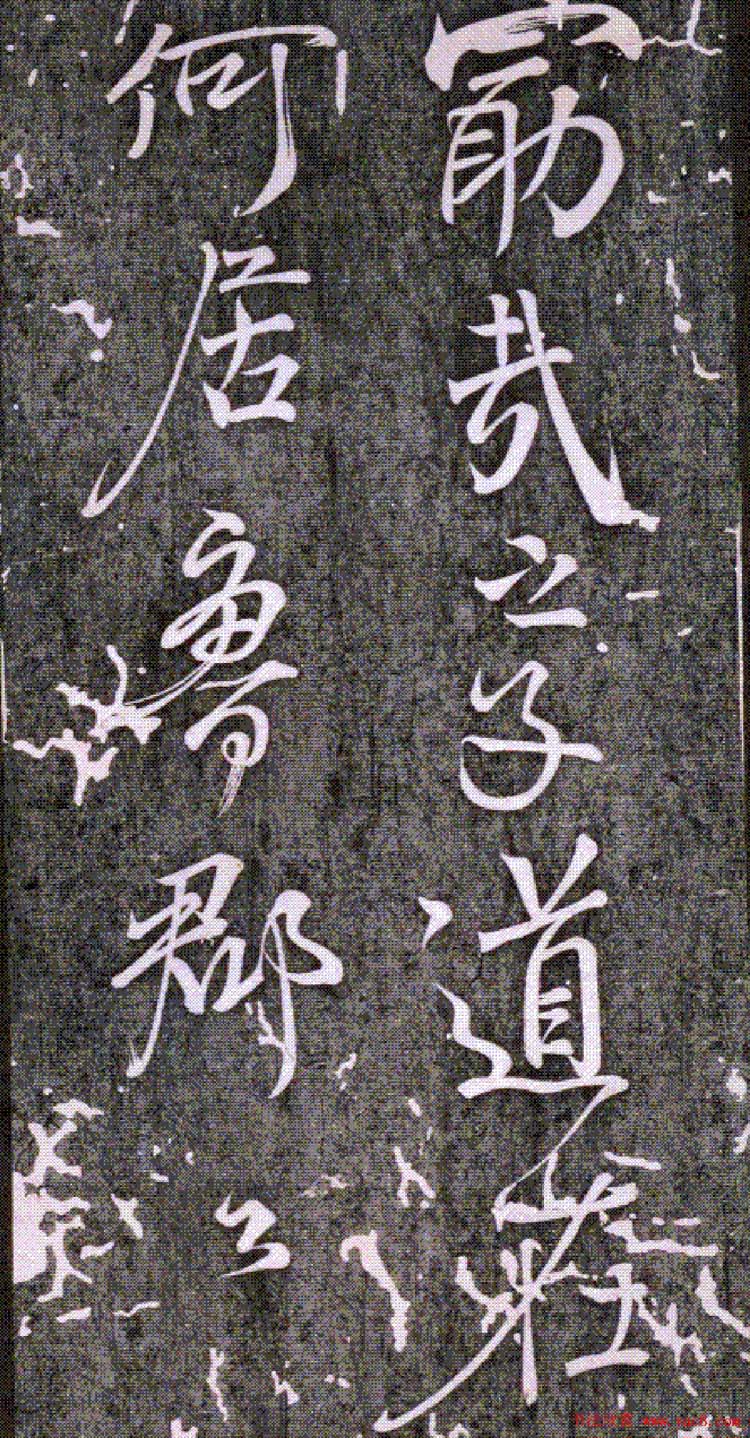 勖哉之子道莊
何居魯郡公